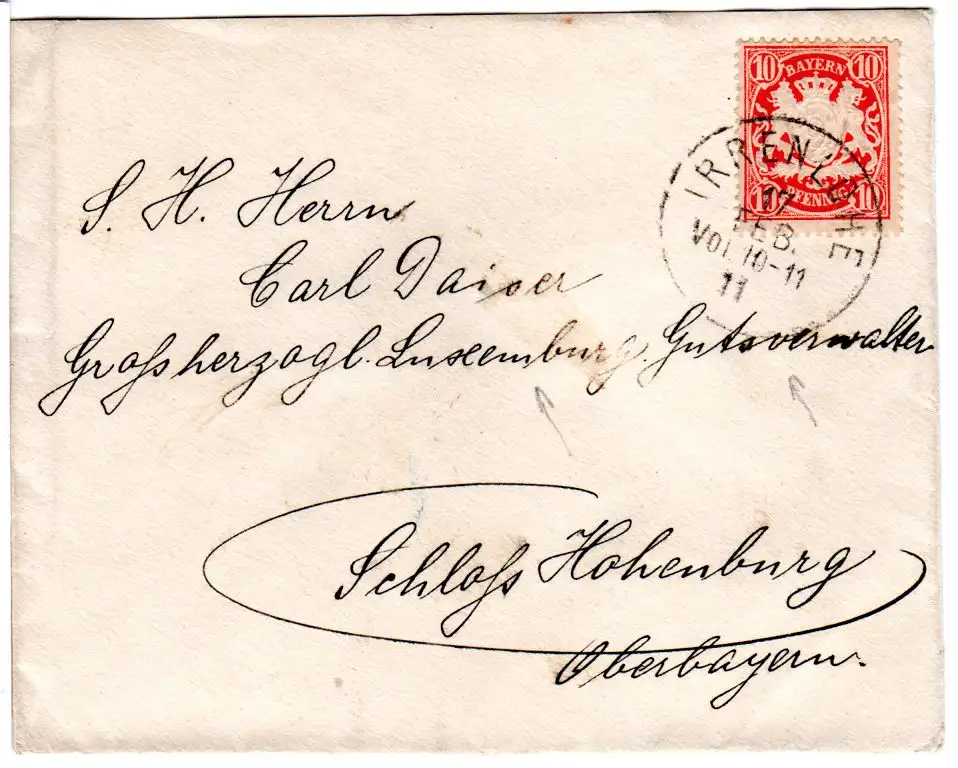 10 BAYERN 10
10 PFENNIG 10
IRRENLOHE
17
FEB.
VOR. 10-11
11
S. H. Herrn
Carl Daiser
Großherzogl. Luxemburg. Gutsverwalter
Schloß Hohenburg
Oberbayern.